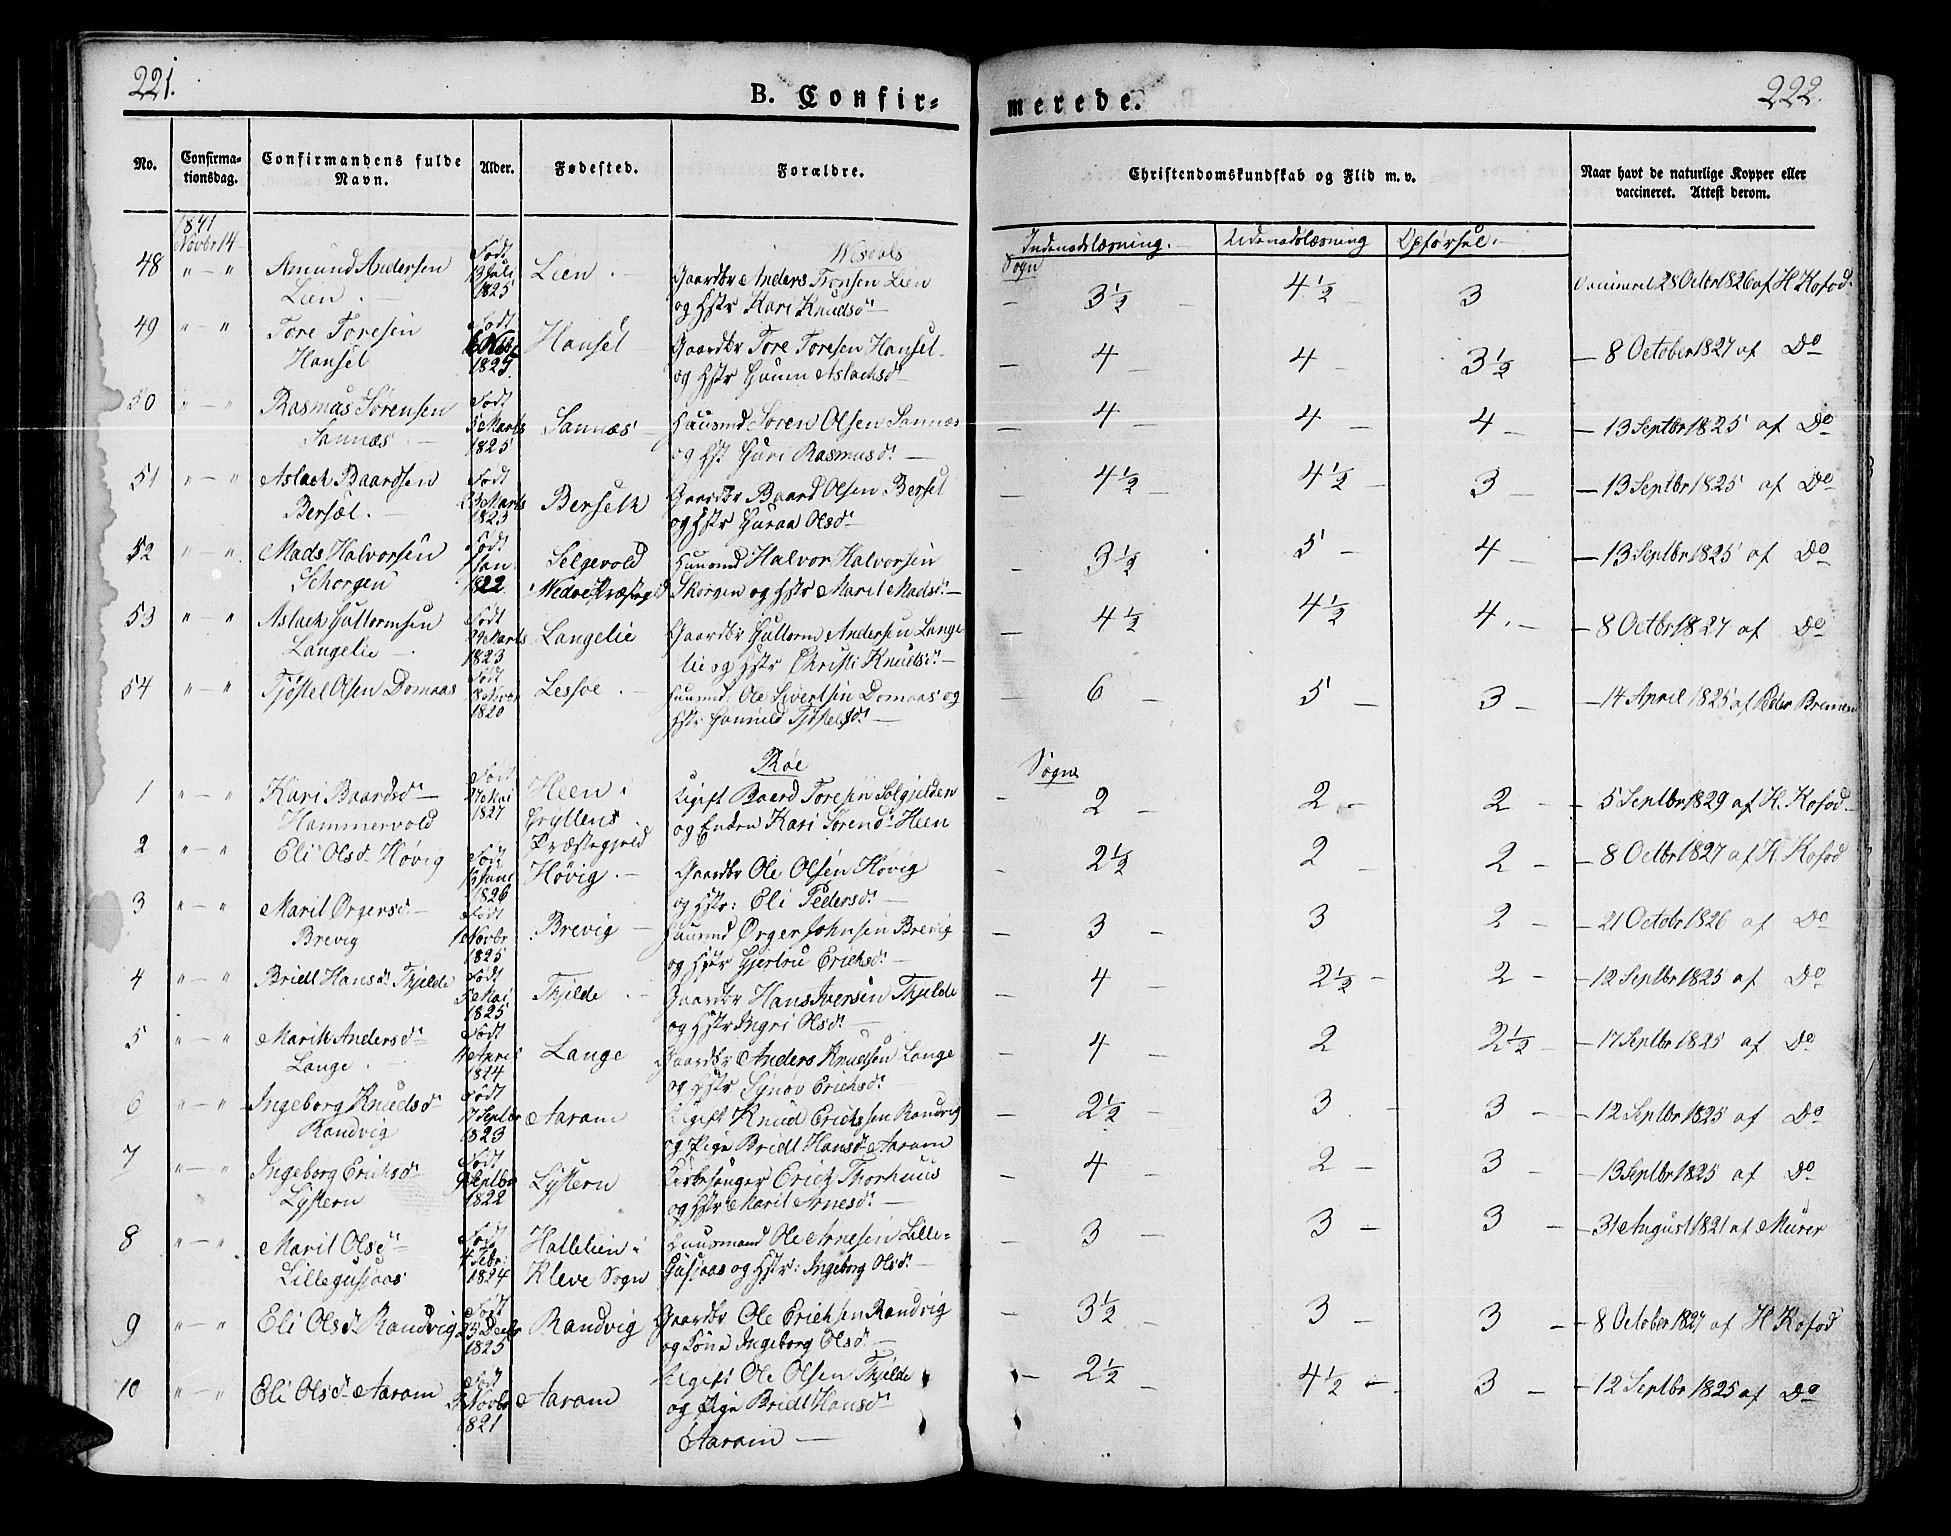 221.
B. Confir-
merede.
222.
No.
Confirma-
tionsdag.
Confirmandens fulde
Navn.
Alder.
Fødested.
Forældre.
Christendomskundskab og Flid m. v.
Naar havt de naturlige Kopper eller
vaccineret. Attest derom.
1841
Novbr 14
Indenadslæsning.
Udenadslæsning
Opførsel.
Sogn
48 " — " Amund Andersen Lien Født 13 Juli 1825 Lien Gaardbr Anders Tronsen Lien og Hstr Kari Knudsd: 3½ 4½ 3 Vaccineret 28 Octbr 1826 af H Kofod
49 " — " Tore Toresen Hansel Født 1825 Hansel Gaardbr Tore Toresen Hansel og Hstr Aslachsd 4 4 3½ 8 October 1827 af Do
50 " — " Rasmus Sørensen Sannæs Født 5 Marts 1825 Sannæs Huusmd Søren Olsen Sannæs og Hst Guri Rasmusd: 4 4 4 13 Septbr 1825 af Do
51 " — " Aslach Baardsen Bersæl Født 23 Marts 1823 Berseth Gaardbr Baard Olsen Bersel og Hstr Olsd 4½ 4½ 3 13 Septbr 1825 af Do
52 " — " Mads Halvorsen Schorgen Født 1 Jan 1822 Selgevold Nedre Huusmd Halvor Halvorsen Skorgen og Hstr Marit Madsd: 3½ 5 4 13 Septbr 1825 af Do
53 " — " Aslach Guttormsen Langelie Født 24 Marts 1823 Langelie Gaardbr Guttorm Andersen Langelie og Hstr Christi Knudsd: 4½ 4½ 4 8 Octbr 1827 af Do
54 " — " Tjøstel Olsen Domaas Født 8 Novbr 1820 Lessøe Huusmd: Ole Sivertsen Domaas og Hstr Gunild Tjøstelsd: 6 5 3 14 April 1825 af Peder
Røe
Sogn
1 " — " Kari Baardsd Hammervold Født 27 Mai 1827 Heen i Gryttens Præstegjeld Ugift Baard Toresen Solgjelden og Enken Kari Sørensd Heen 2 2 2 5 Septbr 1829 af H. Kofod
2 " — " Eli Olsd Høvig Født 1826 Høvig Gaardbr Ole Olsen Høvig og Hstr: Eli Pedersd: 2½ 2 2 8 Octbr 1827 af H Kofod
3 " — " Marit Ørgersd Brevig Født Novbr 1825 Brevig Huusmd Ørger Johnsen Brevig og Hstr Gjertru Erichsd: 3 3 2 21 Octobr 1826 af Do
4 " — " Bridt Hansd: Thjelde Født 5 Mai 1825 Thjelde Gaardbr Hans Iversen Thjelde og Hstr Ingri Olsd: 4 2½ 2 12 Septbr 1825 af Do
5 " — " Marith Andersd: Lange Født April 1824 Lange Gaardbr Anders Knudsen Lange og Hstr Synøv Erichsd: 4 2 2½ 17 Septbr 1825 af Do
6 " — " Ingeborg Knudsd Randvig Født 17 Septbr 1823 Aaram Ugift Knud Erichsen Randvig og Pige Bridt Hansd: Aaram 2½ 3 3 12 Septbr 1825 af Do
7 " — " Ingeborg Erichsd Lystern Født 9 Septbr 1822 Lystern Kirkesanger Erich Thorhuus og Hstr Marit Arnesd: 4 2 3 13 Septbr 1825 af Do
8 " — " Marit Olsd Lillegusjaas Født 4 Febr: 1824 Hallelien i Kleve Sogn Huusmand Ole Arnesen Lille= Gusjaas og Hstr: Ingeborg Olsd: 3 3 3 31 August 1821 af Murer
9 " — " Eli Olsd: Randvig Født 25 Decbr 1825 Randvig Gaardbr Ole Erichsen Randvig og Kone Ingeborg Olsd: 3½ 3 3 8 October 1827 af H Kofod
10 " — " Eli Olsd Aaram Født Novbr 1821 Aaram Ugift Ole Olsen Thjelde og Pige Bridt Hansd: Aaram 2½ 4½ 3 12 Septbr 1825 af Do